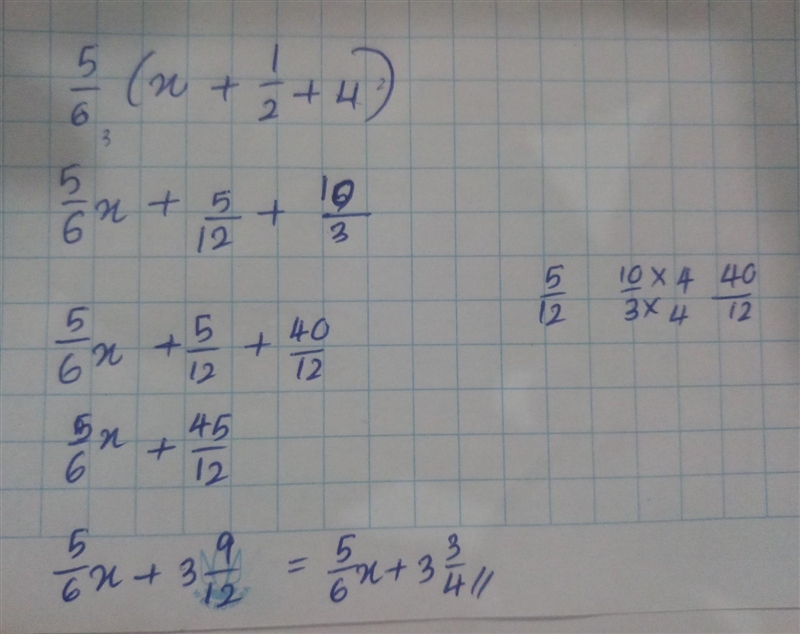 5/6 (x + 1/2 + 4)
3 2
5/6 x + 5/12 + 10/3
5/12 10/3 × 4/4 40/12
5/6 x + 5/12 + 40/12
5/6 x + 45/12
5/6 x + 3 9/12 = 5/6 x + 3 3/4 //